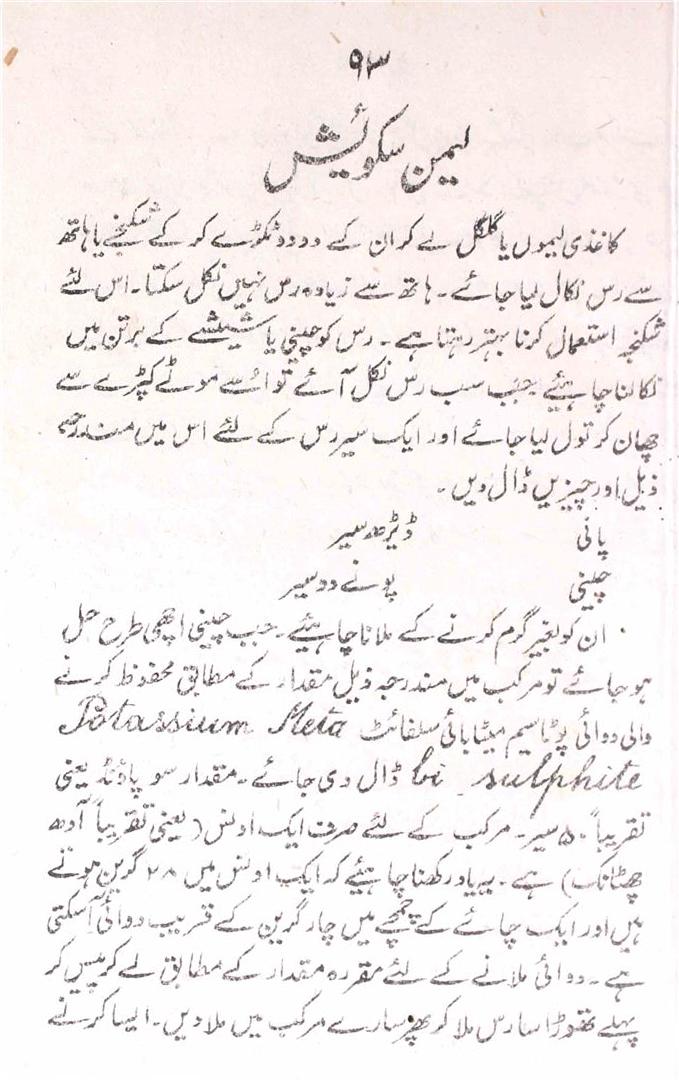 ۹۳
لیمن سکوئیش
کاغذی لیموں یا گلگل لے کر ان کے دو دو ٹکڑے کر کے شکنجے یا ہاتھ
سے رس نکال لیا جائے۔ ہاتھ سے زیادہ رس نہیں نکل سکتا۔ اس لئے
شکنجہ استعمال کرنا بہتر رہتا ہے۔ رس کو چینی یا شیشے کے برتن میں
نکالنا چاہئیے جب سب رس نکل آئے تو اُسے موٹے کپڑے سے
چھان کر تول لیا جائے اور ایک سیر رس کے لئے اس میں مندرجہ
ذیل اور چیزیں ڈال دیں۔
پانی ڈیڑھ سیر
چینی پونے دو سیر
ان کو بغیر گرم کرنے کے ملانا چاہئیے۔ جب چینی اچھی طرح حل
ہو جائے تو مرکب میں مندرجہ ذیل مقدار کے مطابق محفوظ کرنے
والی دوائی پوٹاسیم میٹا بائی سلفائٹ Potassium Meta
bi sulphite ڈال دی جائے۔ مقدار سو پاؤنڈ یعنی
تقریباً ۵۰ سیر۔ مرکب کے لئے صرف ایک اونس (یعنی تقریباً آدھ
چھٹانک) ہے۔ یہ یاد رکھنا چاہئیے کہ ایک اونس میں ۲۸ گرین ہوتے
ہیں اور ایک چائے کے چمچے میں چار گرین کے قریب دوائی آ سکتی
ہے۔ دوائی ملانے کے لئے مقررہ مقدار کے مطابق لے کر پیس کر
پہلے تھوڑا سا رس ملا کو پھر سارے مرکب میں ملا دیں۔ ایسا کرنے